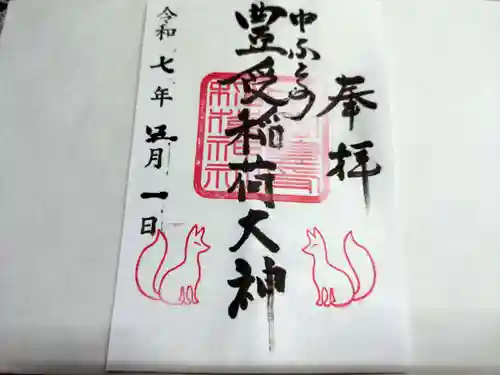 奉拝
豊受稲荷大神
令和七年五月一日